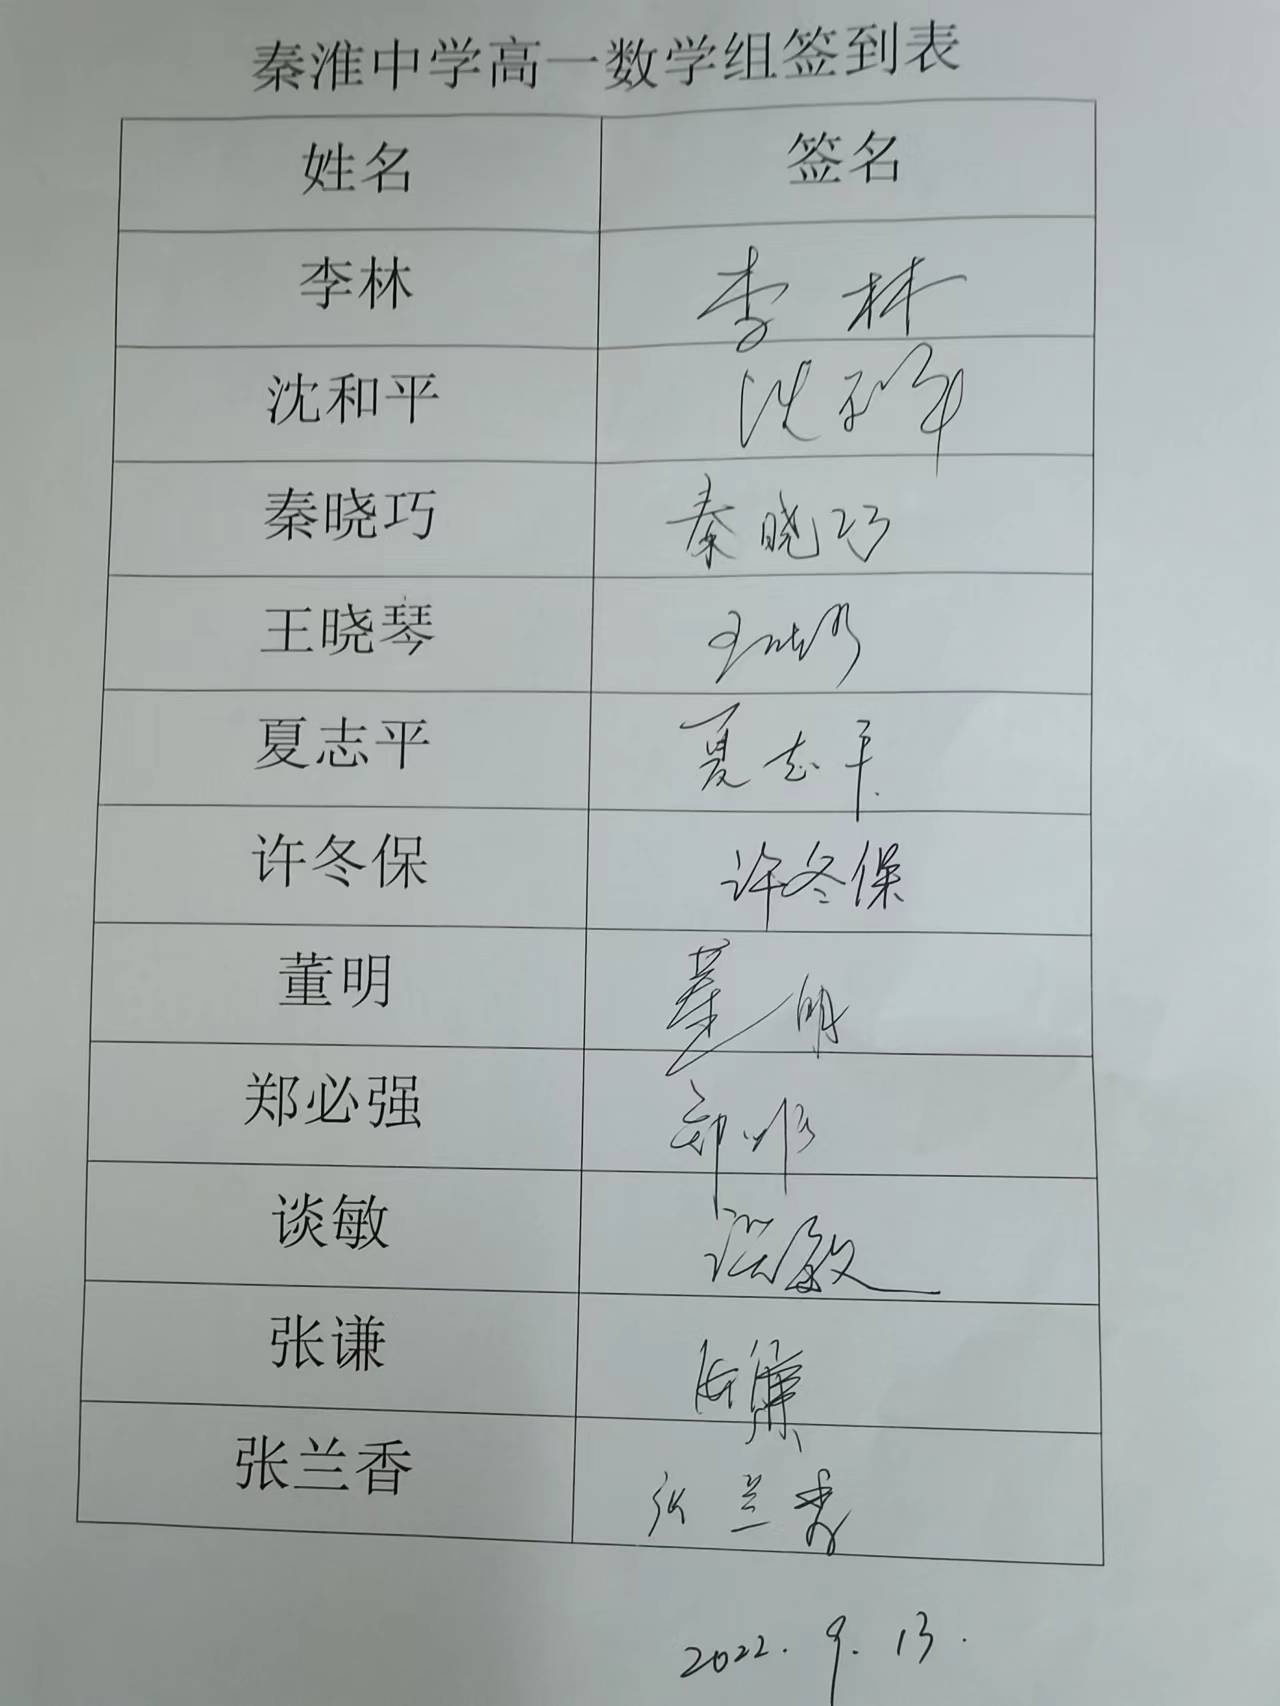 秦淮中学高一数学组签到表
姓名 签名
李林 李林
沈和平 沈和平
秦晓巧 秦晓巧
王晓琴 王晓琴
夏志平 夏志平
许冬保 许冬保
董明 董明
郑必强 郑必强
谈敏 谈敏
张谦 张谦
张兰香 张兰香
2022.9.13.